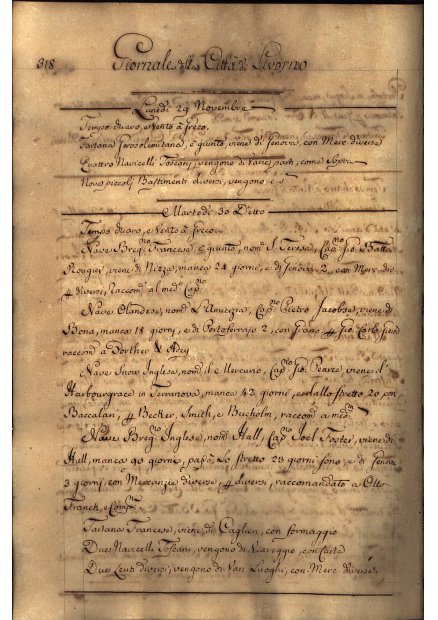 318
Giornale della Città di Livorno
Lunedì 29 Novembre
Tempo chiaro, e vento à greco.
Tartana Gerosolimitana, è giunta, viene di Genova, con Merc diverse
Quattro Navicelli Toscani, vengono di Varie parti, come Sopra
Nove piccoli Bastimenti diversi, vengono
Martedì 30 Detto
Tempo chiaro, e Vento à greco.
Nave Breg.no Francese, è giunto, nom.º S. Teresa, Cap.no Gio. Batta
Rougier, viene di Nizza, manca 21 giorni, e di Genova 2, con Merc di
diversi, Raccom.º al med.º Cap.no
Nave Olandese, nom.ª L'Amicizia, Cap.no Pietro Jacobse, viene di
Bona, manca 18 giorni, e di Portoferrajo 2, con grano Gio. Carlo
raccom.ª a Porther & Adey
Nave Snow Inglese, nom. il Mercurio, Cap.no Gio. Pearce, viene d'
Harbourgrace in Terranova, manca 42 giorni, e dallo stretto 20, con
Baccalan, Becker, Smith, e Bucholm, raccom.ª a med.
Nave Breg.no Inglese, nom.º Hall, Cap.no Joel Foster, viene di
Hall, manca 90 giorni, passò lo stretto 28 giorni sono, e di Genova
3 giorni, con Mercanzie diverse, diversi, raccomandato a Otto
Franck, e Comp.
Tartana Francese, viene di Caglieri, con formaggio
Due Navicelli Toscani, vengono di Viareggio, con
Due Leuti diversi, vengono di Varj Luoghi, con Merc diverse.